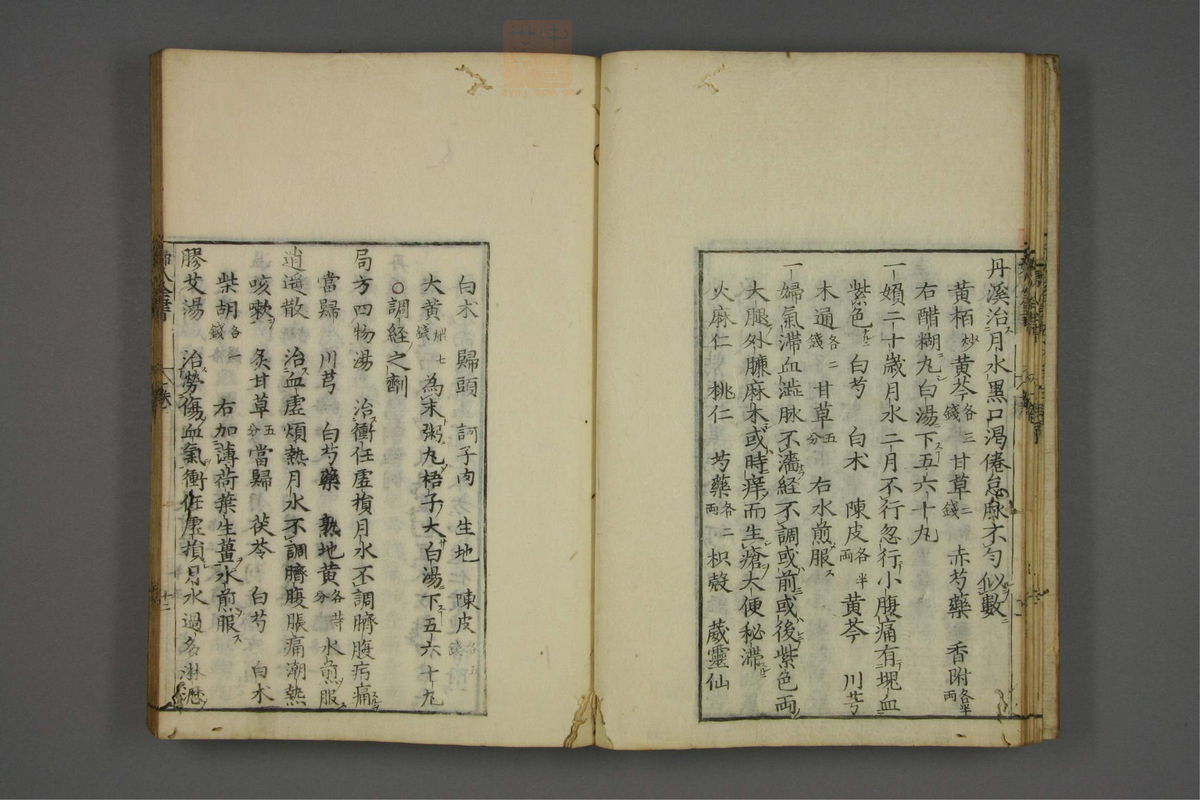 丹溪治月水黒口渇倦怠脉不勻似數
黄栢炒黄芩各三錢甘草二錢赤芍藥香附各半両
右醋糊丸白湯下五六十丸
一婦二十歳月水二月不行忽行小腹痛有塊血
紫色白芍白术陳皮各半両黄芩川芎
木通各二錢甘草五分右水煎服
一婦氣滞血澁脉不濇経不調或前或後紫色両
大腿外臁麻木或時痒而生瘡大便秘滞
火麻仁桃仁芍藥各二両枳殻葳靈仙
白术歸頭訶子肉生地陳皮各五錢
大黄煨七錢為末粥丸梧子大白湯下五六十丸
○調経之劑
局方四物湯治衝任虚損月水不調臍腹㽲痛
當歸川芎白芍藥熟地黄各廿分水煎服
逍遥散治血虚煩熱月水不調臍腹脹痛潮熱
咳嗽炙甘草五分當歸茯苓白芍白木
柴胡各一錢右加薄荷葉生薑水煎服
膠艾湯治勞傷血氣衝任虚損月水過多淋瀝